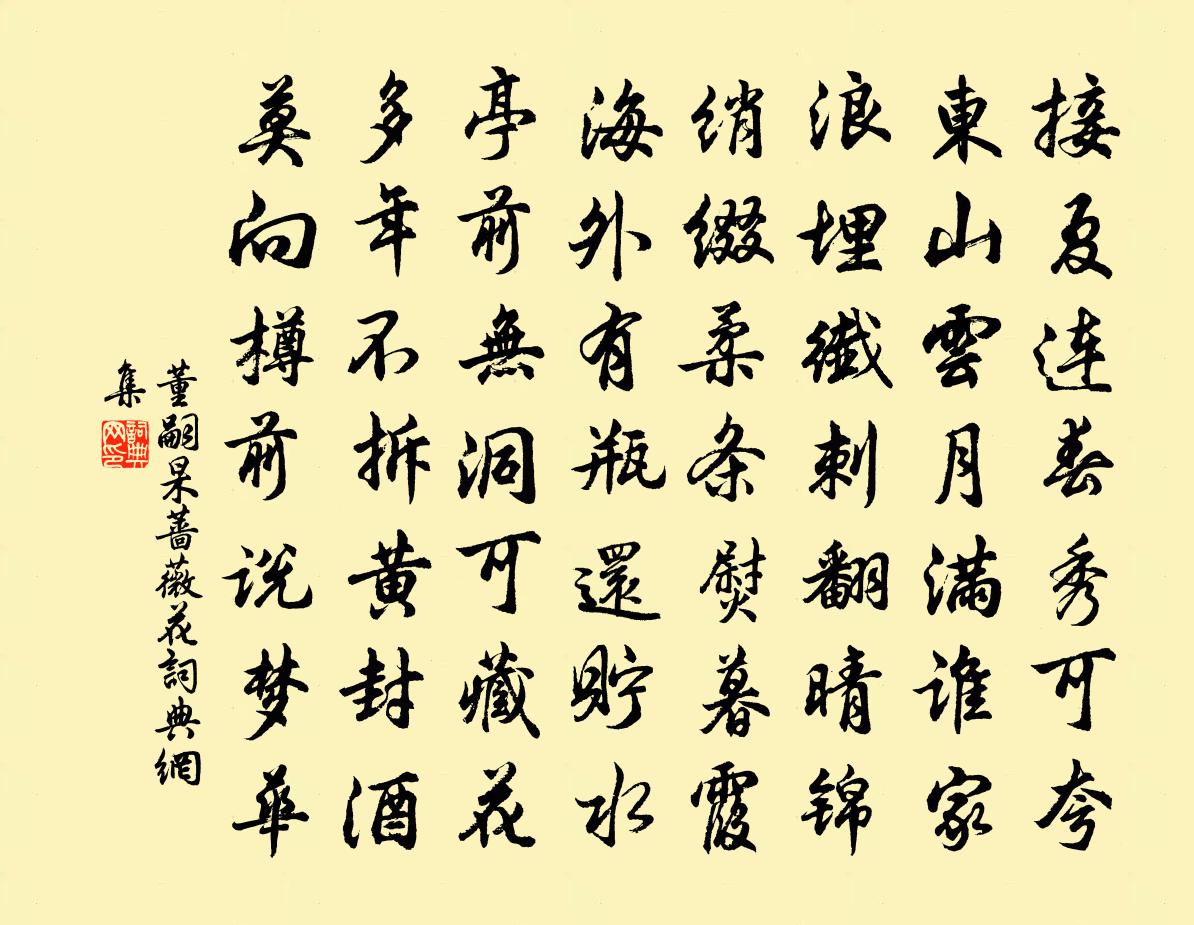 接夏连春秀可夸
東山雲月満谁家
浪埋纖刺翻晴锦
绡缀柔条熨暮霞
海外有瓶還貯水
亭前無洞可藏花
多年不拆黄封酒
莫向樽前说梦華
董嗣杲薔薇花詞典網
集
詞典网印